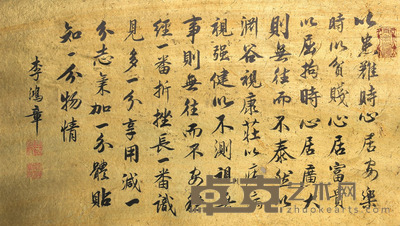 以患難時心居安樂
時以貧賤心居富貴
以屈拘時心居廣大
則無往而不泰然以
淵谷視康莊以疾病
視强健以不測視無
事則無往而不安穩
經一番折挫長一番識
見多一分享用減一
分志氣加一分體貼
知一分物情
李鴻章
艺术网